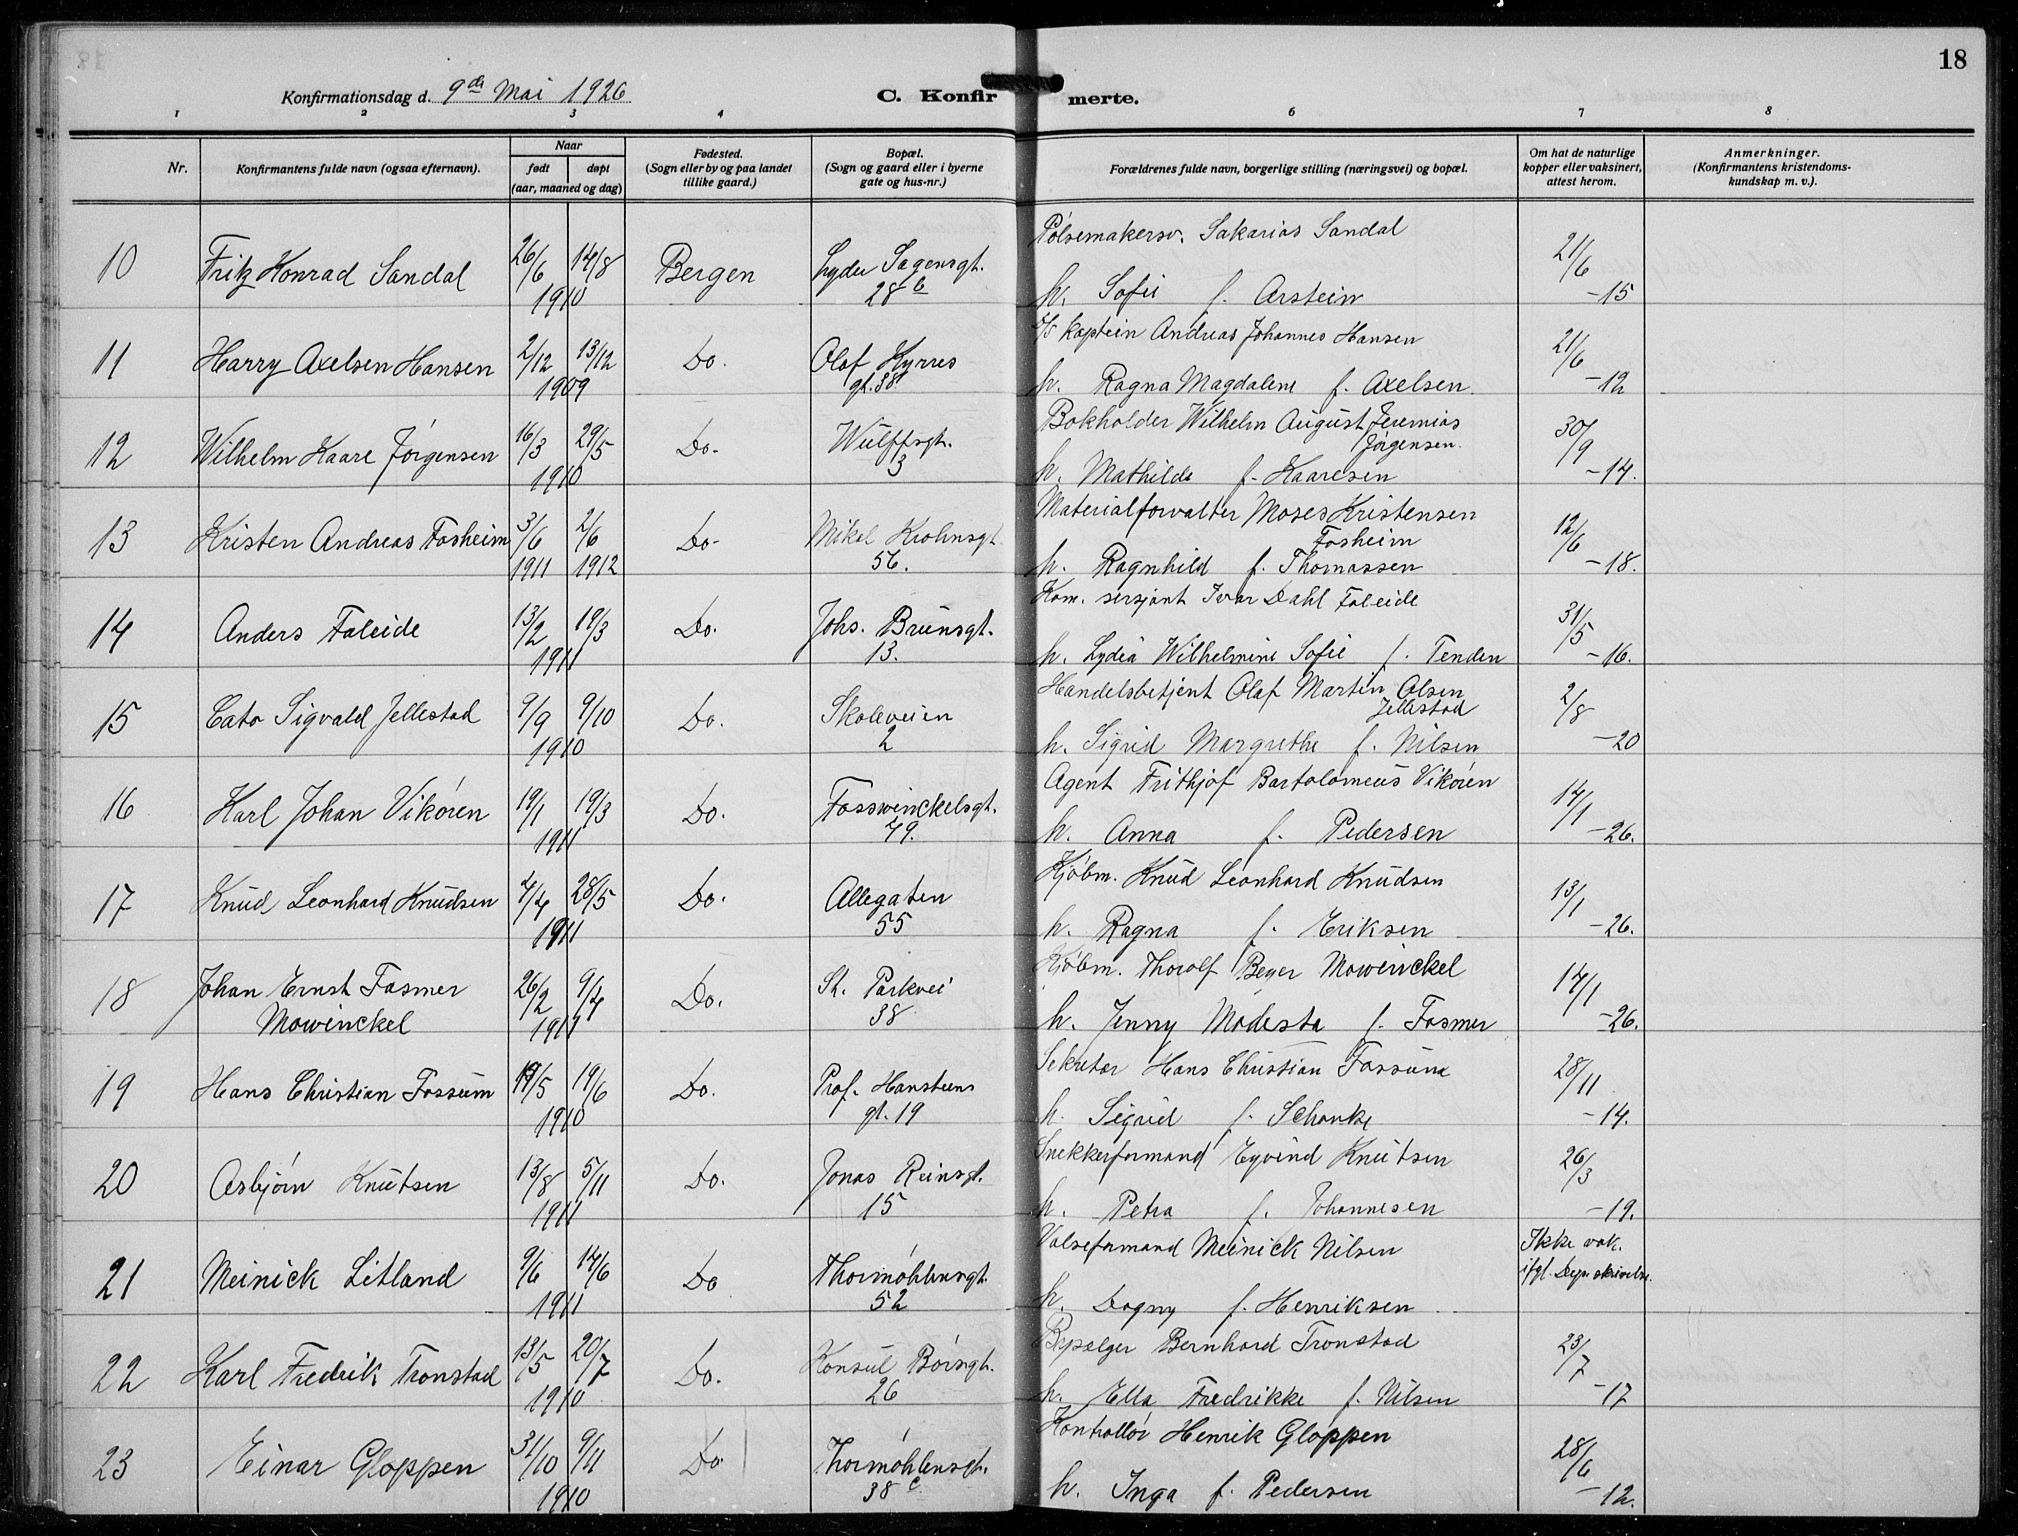 18
Konfirmationsdag d. 9de Mai 1926
C. Konfirmerte.
1 2 3 4 5 6 7 8
Nr.
Konfirmantens fulde navn (ogsaa efternavn).
Naar
født døpt
(aar, maaned og dag)
Fødested.
(Sogn eller by og paa landet
tillike gaard.)
Bopæl.
(Sogn og gaard eller i byerne
gate og hus-nr.)
Forældrenes fulde navn, borgerlige stilling (næringsvei) og bopæl.
Om hat de naturlige
kopper eller vaksinert,
attest herom.
Anmerkninger.
(Konfirmantens kristendoms-
kundskap m. v.).
Pølsemakersv. Sakarias Sandal
10 Fritz Konrad Sandal 26/6 14/8 Bergen Lyder Sagensgt. 21/6
1910 28 b h. Sofie f. Arstein -15
D/S kaptein Andreas Johannes Hansen
11 Harry Axelsen Hansen 2/12 13/12 Do. Olaf Kyrres 21/6
1909 gt. 38 h. Ragna Magdalene f. Axelsen -12
Bokholder Wilhelm August Jeremias
12 Wilhelm Kaare Jörgensen 16/3 29/5 Do- Wulffsgt. Jörgensen. 30/9
1910 3 h. Mathilde f. Kaaresen -14.
Materialforvalter Moses Kristensen
13 Kristen Andreas Fosheim 3/6 2/6 Do- Mikal Krohnsgt. Fosheim 12/6
1911 1912 56. h. Ragnhild f. Thomassen -18.
Kom. sersjant Ivar Dahl Faleide
14 Anders Faleide 13/2 19/3 Do. Johs. Brunsgt. 31/5
1911 13. h. Lydia Wilhelmine Sofie f. Tenden -16.
Handelsbetjent Olaf Martin Olsen
15 Cato Sigvald Jellestad 9/9 9/10 Do. Skoleveien Jellestad 2/8
1910 2 h. Sigrid Margrethe f. Nilsen -20
Agent Frithjof Bartolomeus Vikören
16 Karl Johan Vikören 19/1 19/3 Do. Fosswinckelsgt. 14/1
1911 49. h. Anna f. Pedersen -26.
Kjøbm. Knud Leonhard Knudsen
17 Knud Leonhard Knudsen 4/4 28/5 Do. Allegaten 13/1
1911 55 h. Ragna f. Eriksen -26.
Kjøbm. Thorolf Beyer Mowinckel
18 Johan Ernst Fasmer 26/2 9/4 Do. St. Parkvei 14/1
Mowinckel 1911 38 h. Jenny Modesta f. Fasmer -26.
Sekretær Hans Christian Fossum
19 Hans Christian Fossum 19/5 19/6 Do. Prof. Hansteens 28/11
1910 gt. 19 h. Sigrid f. Schanke -14.
Snekkerformand Eyvind Knutsen
20 Asbjörn Knutsen 13/8 5/11 Do. Jonas Reinsgt. 26/3
1911 15 h. Petra f. Johannesen -19.
Valseformand Meinick Nilsen Ikke vak.
21 Meinick Litland 9/6 14/6 Do Thormöhlensgt. ifgl. Dep. skrivelse.
1911 52 h. Dagny f. Henriksen
Bypælger Bernhard Tronstad
22 Karl Fredrik Tronstad 13/5 20/7 Do. Konsul Börsgt. 23/7
1910 26 h. Ella Fredrikke f. Nilsen -17
Kontrollör Henrik Gloppen
23 Einar Gloppen 31/10 9/11 Do Thormöhlensgt. 28/6
1910 38 c h. Inga f. Pedersen -12.